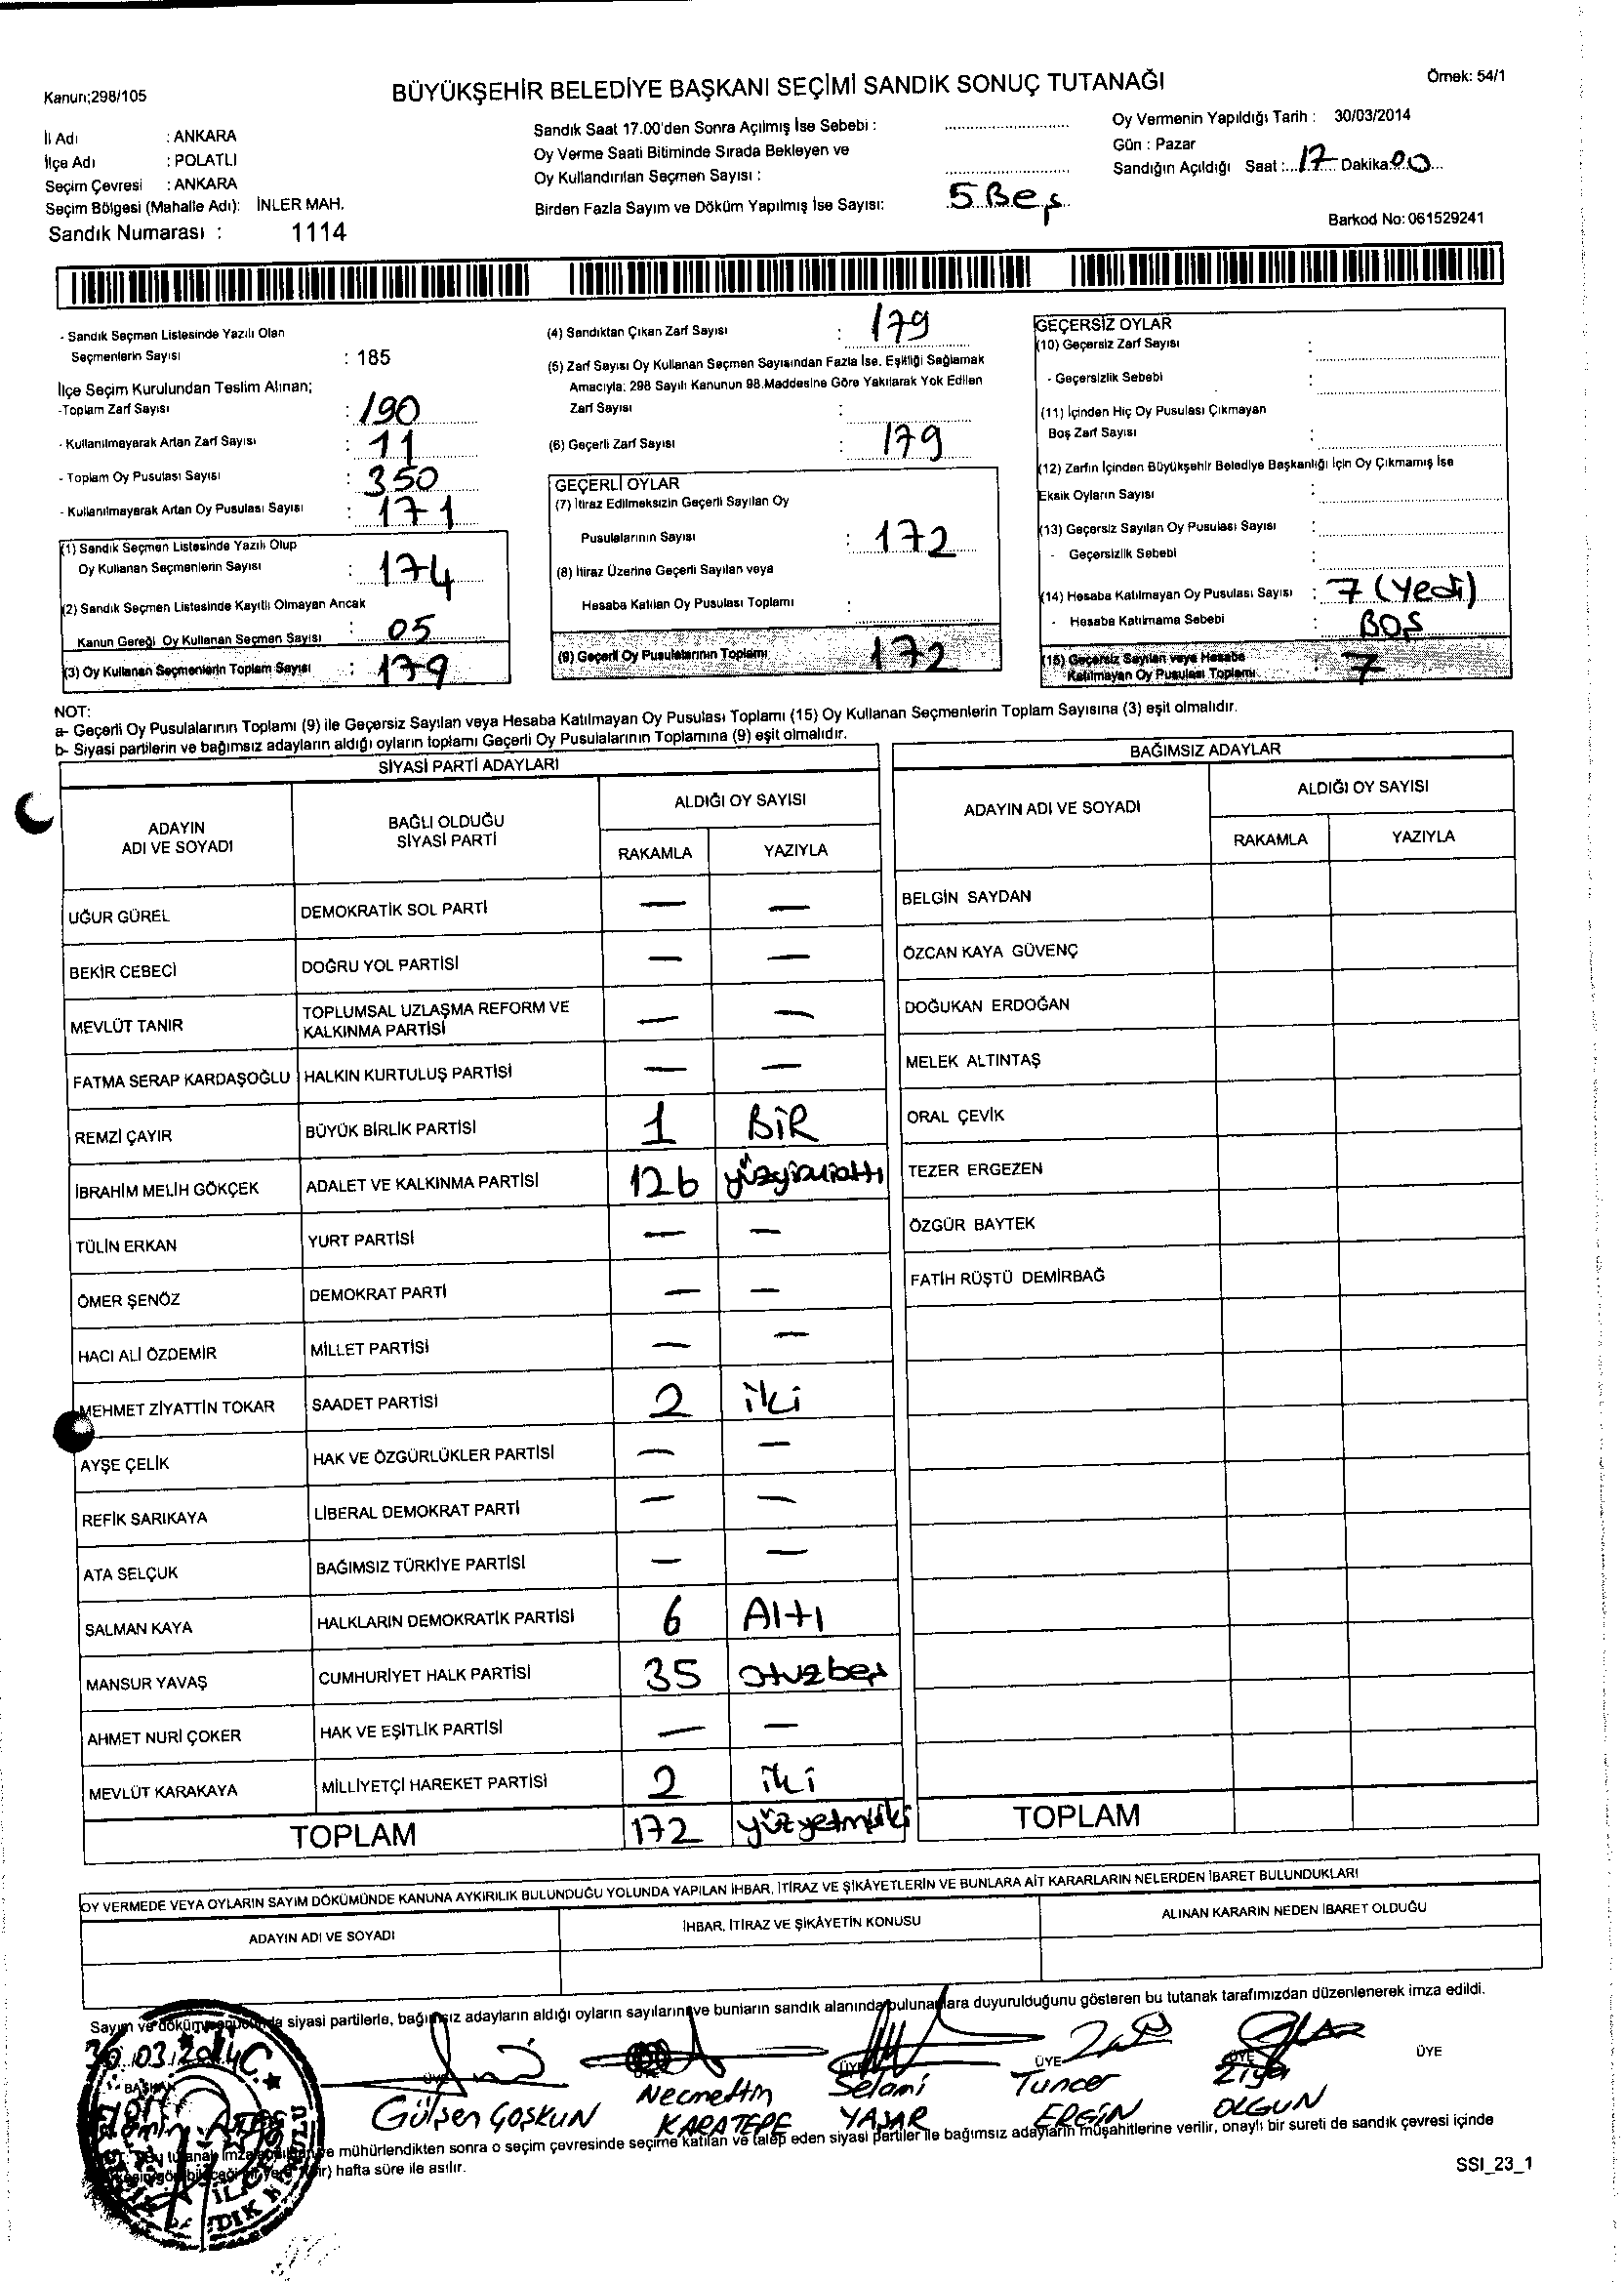 Kanun;298/105
BÜYÜKŞEHİR BELEDİYE BAŞKANI SEÇİMİ SANDIK SONUÇ TUTANAĞI
Örnek: 54/1
İl Adı : ANKARA
İlçe Adı : POLATLI
Seçim Çevresi : ANKARA
Seçim Bölgesi (Mahalle Adı): İNLER MAH.
Sandık Numarası : 1114
Sandık Saat 17.00'den Sonra Açılmış İse Sebebi :
Oy Verme Saati Bitiminde Sırada Bekleyen ve
Oy Kullandırılan Seçmen Sayısı :
Birden Fazla Sayım ve Döküm Yapılmış İse Sayısı: 5 Beş
Oy Vermenin Yapıldığı Tarih : 30/03/2014
Gün : Pazar
Sandığın Açıldığı Saat : 17 Dakika 00
Barkod No: 061529241
- Sandık Seçmen Listesinde Yazılı Olan
Seçmenlerin Sayısı : 185
İlçe Seçim Kurulundan Teslim Alınan;
-Toplam Zarf Sayısı : 190
- Kullanılmayarak Artan Zarf Sayısı : 11
- Toplam Oy Pusulası Sayısı : 350
- Kullanılmayarak Artan Oy Pusulası Sayısı : 171
(1) Sandık Seçmen Listesinde Yazılı Olup
Oy Kullanan Seçmenlerin Sayısı : 174
(2) Sandık Seçmen Listesinde Kayıtlı Olmayan Ancak
Kanun Gereği Oy Kullanan Seçmen Sayısı : 05
(3) Oy Kullanan Seçmenlerin Toplam Sayısı : 179
(4) Sandıktan Çıkan Zarf Sayısı : 179
(5) Zarf Sayısı Oy Kullanan Seçmen Sayısından Fazla İse. Eşitliği Sağlamak
Amacıyla: 298 Sayılı Kanunun 98.Maddesine Göre Yakılarak Yok Edilen
Zarf Sayısı :
(6) Geçerli Zarf Sayısı : 179
GEÇERLİ OYLAR
(7) İtiraz Edilmeksizin Geçerli Sayılan Oy
Pusulalarının Sayısı : 172
(8) İtiraz Üzerine Geçerli Sayılan veya
Hesaba Katılan Oy Pusulası Toplamı :
(9) Geçerli Oy Pusulalarının Toplamı 172
GEÇERSİZ OYLAR
(10) Geçersiz Zarf Sayısı :
- Geçersizlik Sebebi :
(11) İçinden Hiç Oy Pusulası Çıkmayan
Boş Zarf Sayısı :
(12) Zarfın İçinden Büyükşehir Belediye Başkanlığı İçin Oy Çıkmamış İse
Eksik Oyların Sayısı :
(13) Geçersiz Sayılan Oy Pusulası Sayısı :
- Geçersizlik Sebebi :
(14) Hesaba Katılmayan Oy Pusulası Sayısı : 7 (Yedi)
- Hesaba Katılmama Sebebi : BOŞ
(15) Geçersiz Sayılan veya Hesaba
Katılmayan Oy Pusulası Toplamı : 7
NOT:
a- Geçerli Oy Pusulalarının Toplamı (9) ile Geçersiz Sayılan veya Hesaba Katılmayan Oy Pusulası Toplamı (15) Oy Kullanan Seçmenlerin Toplam Sayısına (3) eşit olmalıdır.
b- Siyasi partilerin ve bağımsız adayların aldığı oyların toplamı Geçerli Oy Pusulalarının Toplamına (9) eşit olmalıdır.
SİYASİ PARTİ ADAYLARI
ADAYIN ADI VE SOYADI BAĞLI OLDUĞU SİYASİ PARTİ ALDIĞI OY SAYISI
RAKAMLA YAZIYLA
UĞUR GÜREL DEMOKRATİK SOL PARTİ — —
BEKİR CEBECİ DOĞRU YOL PARTİSİ — —
MEVLÜT TANIR TOPLUMSAL UZLAŞMA REFORM VE KALKINMA PARTİSİ — —
FATMA SERAP KARDAŞOĞLU HALKIN KURTULUŞ PARTİSİ — —
REMZİ ÇAYIR BÜYÜK BİRLİK PARTİSİ 1 BİR
İBRAHİM MELİH GÖKÇEK ADALET VE KALKINMA PARTİSİ 126 yüzyirmialtı
TÜLİN ERKAN YURT PARTİSİ — —
ÖMER ŞENÖZ DEMOKRAT PARTİ — —
HACI ALİ ÖZDEMİR MİLLET PARTİSİ — —
MEHMET ZİYATTİN TOKAR SAADET PARTİSİ 2 iki
AYŞE ÇELİK HAK VE ÖZGÜRLÜKLER PARTİSİ — —
REFİK SARIKAYA LİBERAL DEMOKRAT PARTİ — —
ATA SELÇUK BAĞIMSIZ TÜRKİYE PARTİSİ — —
SALMAN KAYA HALKLARIN DEMOKRATİK PARTİSİ 6 Altı
MANSUR YAVAŞ CUMHURİYET HALK PARTİSİ 35 otuzbeş
AHMET NURİ ÇOKER HAK VE EŞİTLİK PARTİSİ — —
MEVLÜT KARAKAYA MİLLİYETÇİ HAREKET PARTİSİ 2 iki
TOPLAM 172 yüzyetmişiki
BAĞIMSIZ ADAYLAR
ADAYIN ADI VE SOYADI ALDIĞI OY SAYISI
RAKAMLA YAZIYLA
BELGİN SAYDAN
ÖZCAN KAYA GÜVENÇ
DOĞUKAN ERDOĞAN
MELEK ALTINTAŞ
ORAL ÇEVİK
TEZER ERGEZEN
ÖZGÜR BAYTEK
FATİH RÜŞTÜ DEMİRBAĞ
TOPLAM
OY VERMEDE VEYA OYLARIN SAYIM DÖKÜMÜNDE KANUNA AYKIRILIK BULUNDUĞU YOLUNDA YAPILAN İHBAR, İTİRAZ VE ŞİKAYETLERİN VE BUNLARA AİT KARARLARIN NELERDEN İBARET BULUNDUKLARI
ADAYIN ADI VE SOYADI İHBAR, İTİRAZ VE ŞİKAYETİN KONUSU ALINAN KARARIN NEDEN İBARET OLDUĞU
Sayım ve dökümü siyasi partilerle, bağımsız adayların aldığı oyların sayılarını ve bunların sandık alanında bulunanlara duyurulduğunu gösteren bu tutanak tarafımızdan düzenlenerek imza edildi.
30.03.2014
BAŞKAN ÜYE ÜYE ÜYE ÜYE ÜYE ÜYE
Gülşen ÇOŞKUN
Necmettin KARATEPE
Selami YAŞAR
Tuncer ERGİN
Ziya OLGUN
ve mühürlendikten sonra o seçim çevresinde seçime katılan ve talep eden siyasi partiler ile bağımsız adayların müşahitlerine verilir, onaylı bir sureti de sandık çevresi içinde
hafta süre ile asılır.
SSI_23_1